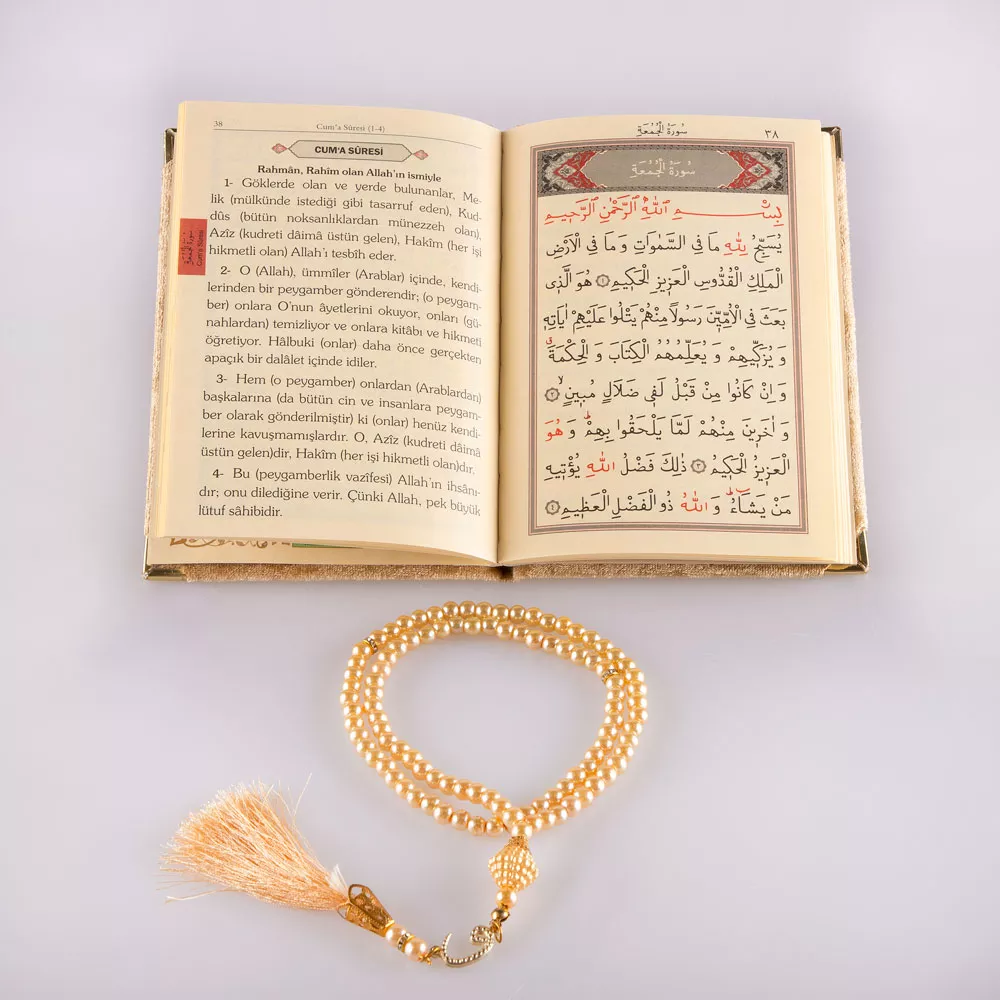 38
Cum'a Sûresi (1-4)
CUM'A SÛRESİ
Rahmân, Rahîm olan Allah'ın ismiyle
1- Göklerde olan ve yerde bulunanlar, Me-
lik (mülkünde istediği gibi tasarruf eden), Kud-
dûs (bütün noksanlıklardan münezzeh olan),
Azîz (kudreti dâimâ üstün gelen), Hakîm (her işi
hikmetli olan) Allah'ı tesbîh eder.
2- O (Allah), ümmîler (Arablar) içinde, kendi-
lerinden bir peygamber gönderendir; (o peygam-
ber) onlara O'nun âyetlerini okuyor, onları (gü-
nahlardan) temizliyor ve onlara kitâbı ve hikmeti
öğretiyor. Hâlbuki (onlar) daha önce gerçekten
apaçık bir dalâlet içinde idiler.
3- Hem (o peygamber) onlardan (Arablardan)
başkalarına (da bütün cin ve insanlara peygam-
ber olarak gönderilmiştir) ki (onlar) henüz kendi-
lerine kavuşmamışlardır. O, Azîz (kudreti dâimâ
üstün gelen)dir, Hakîm (her işi hikmetli olan)dır.
4- Bu (peygamberlik vazîfesi) Allah'ın ihsânı-
dır; onu dilediğine verir. Çünki Allah, pek büyük
lütuf sâhibidir.
سُورَةُ الْجُمُعَةِ
Cum'a Sûresi
سُورَةُ الْجُمُعَةِ
٣٨
سُورَةُ الْجُمُعَةِ
بِسْمِ اللّٰهِ الرَّحْمٰنِ الرَّحِيمِ
يُسَبِّحُ لِلّٰهِ مَا فِى السَّمٰوَاتِ وَ مَا فِى الْاَرْضِ
الْمَلِكِ الْقُدُّوسِ الْعَزِيزِ الْحَكِيمِ ﴿١﴾ هُوَ الَّذِى
بَعَثَ فِى الْاُمِّيّنَ رَسُولاً مِنْهُمْ يَتْلُوا عَلَيْهِمْ اٰيَاتِهِ
وَ يُزَكِّيهِمْ وَ يُعَلِّمُهُمُ الْكِتَابَ وَ الْحِكْمَةَ
وَ اِنْ كَانُوا مِنْ قَبْلُ لَفِى ضَلَالٍ مُبِينٍ ﴿٢﴾
وَ اٰخَرِينَ مِنْهُمْ لَمَّا يَلْحَقُوا بِهِمْ وَ هُوَ
الْعَزِيزُ الْحَكِيمُ ﴿٣﴾ ذٰلِكَ فَضْلُ اللّٰهِ يُؤْتِيهِ
مَنْ يَشَاءُ وَ اللّٰهُ ذُو الْفَضْلِ الْعَظِيمِ ﴿٤﴾